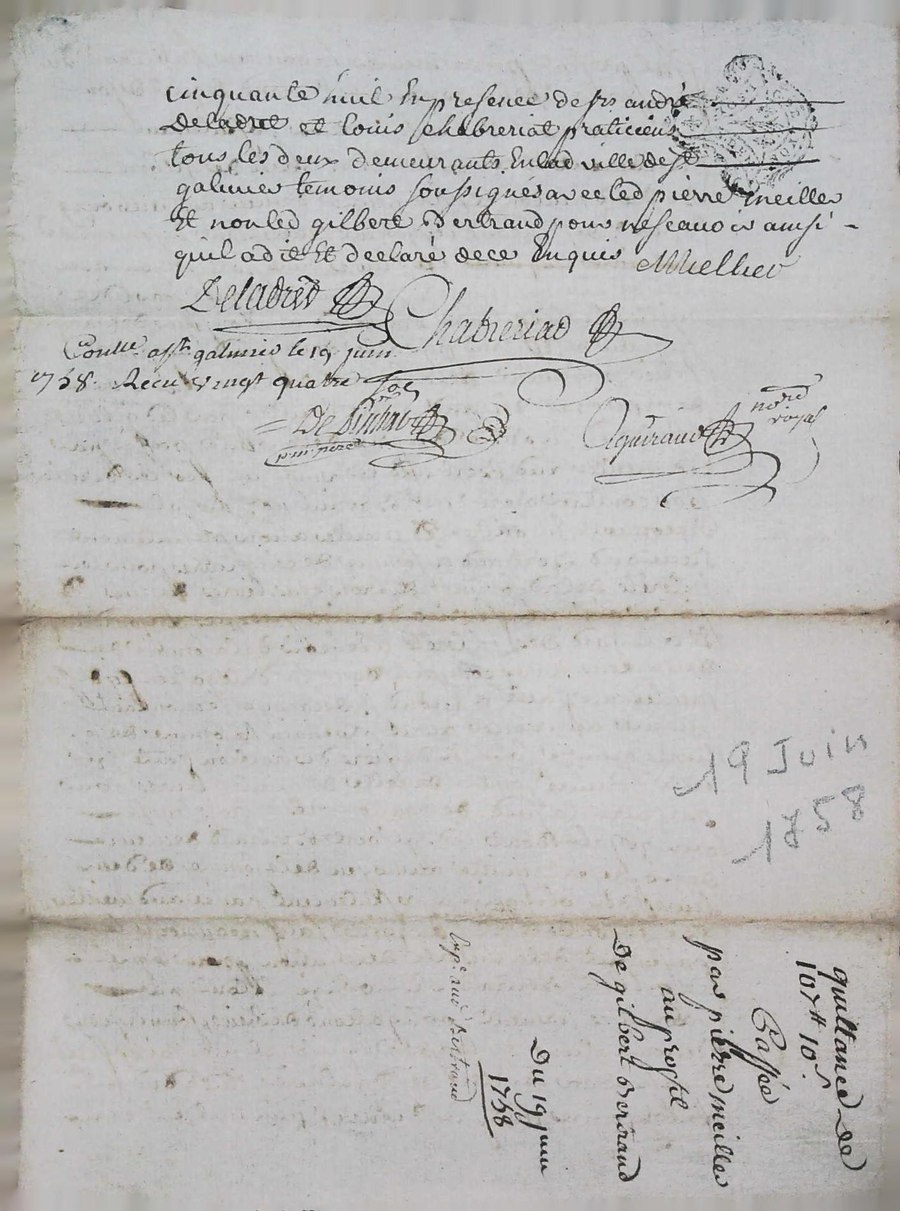 cinquante huit En presence de srs andré
Deladret et louis Chabreriat praticiens
tous les deux demeurants En lad ville de st
galmier temoins soussignés avec led pierre meiller
Et non led gilbert Bertrand pour ne scavoir ainsi
quil a dit Et declaré de ce Enquis Mellier
Deladret
Chabreriad
Conlle a st galmier le 19 juin
1758. Recu vingt quatre sols
De
Guiraud nore
royal
19 Juin
1758
quittance de
107tt 10s
Passée
par pierre meiller
au profit
De gilbert Bertrand
Du 19 juin
1758
Bertrand